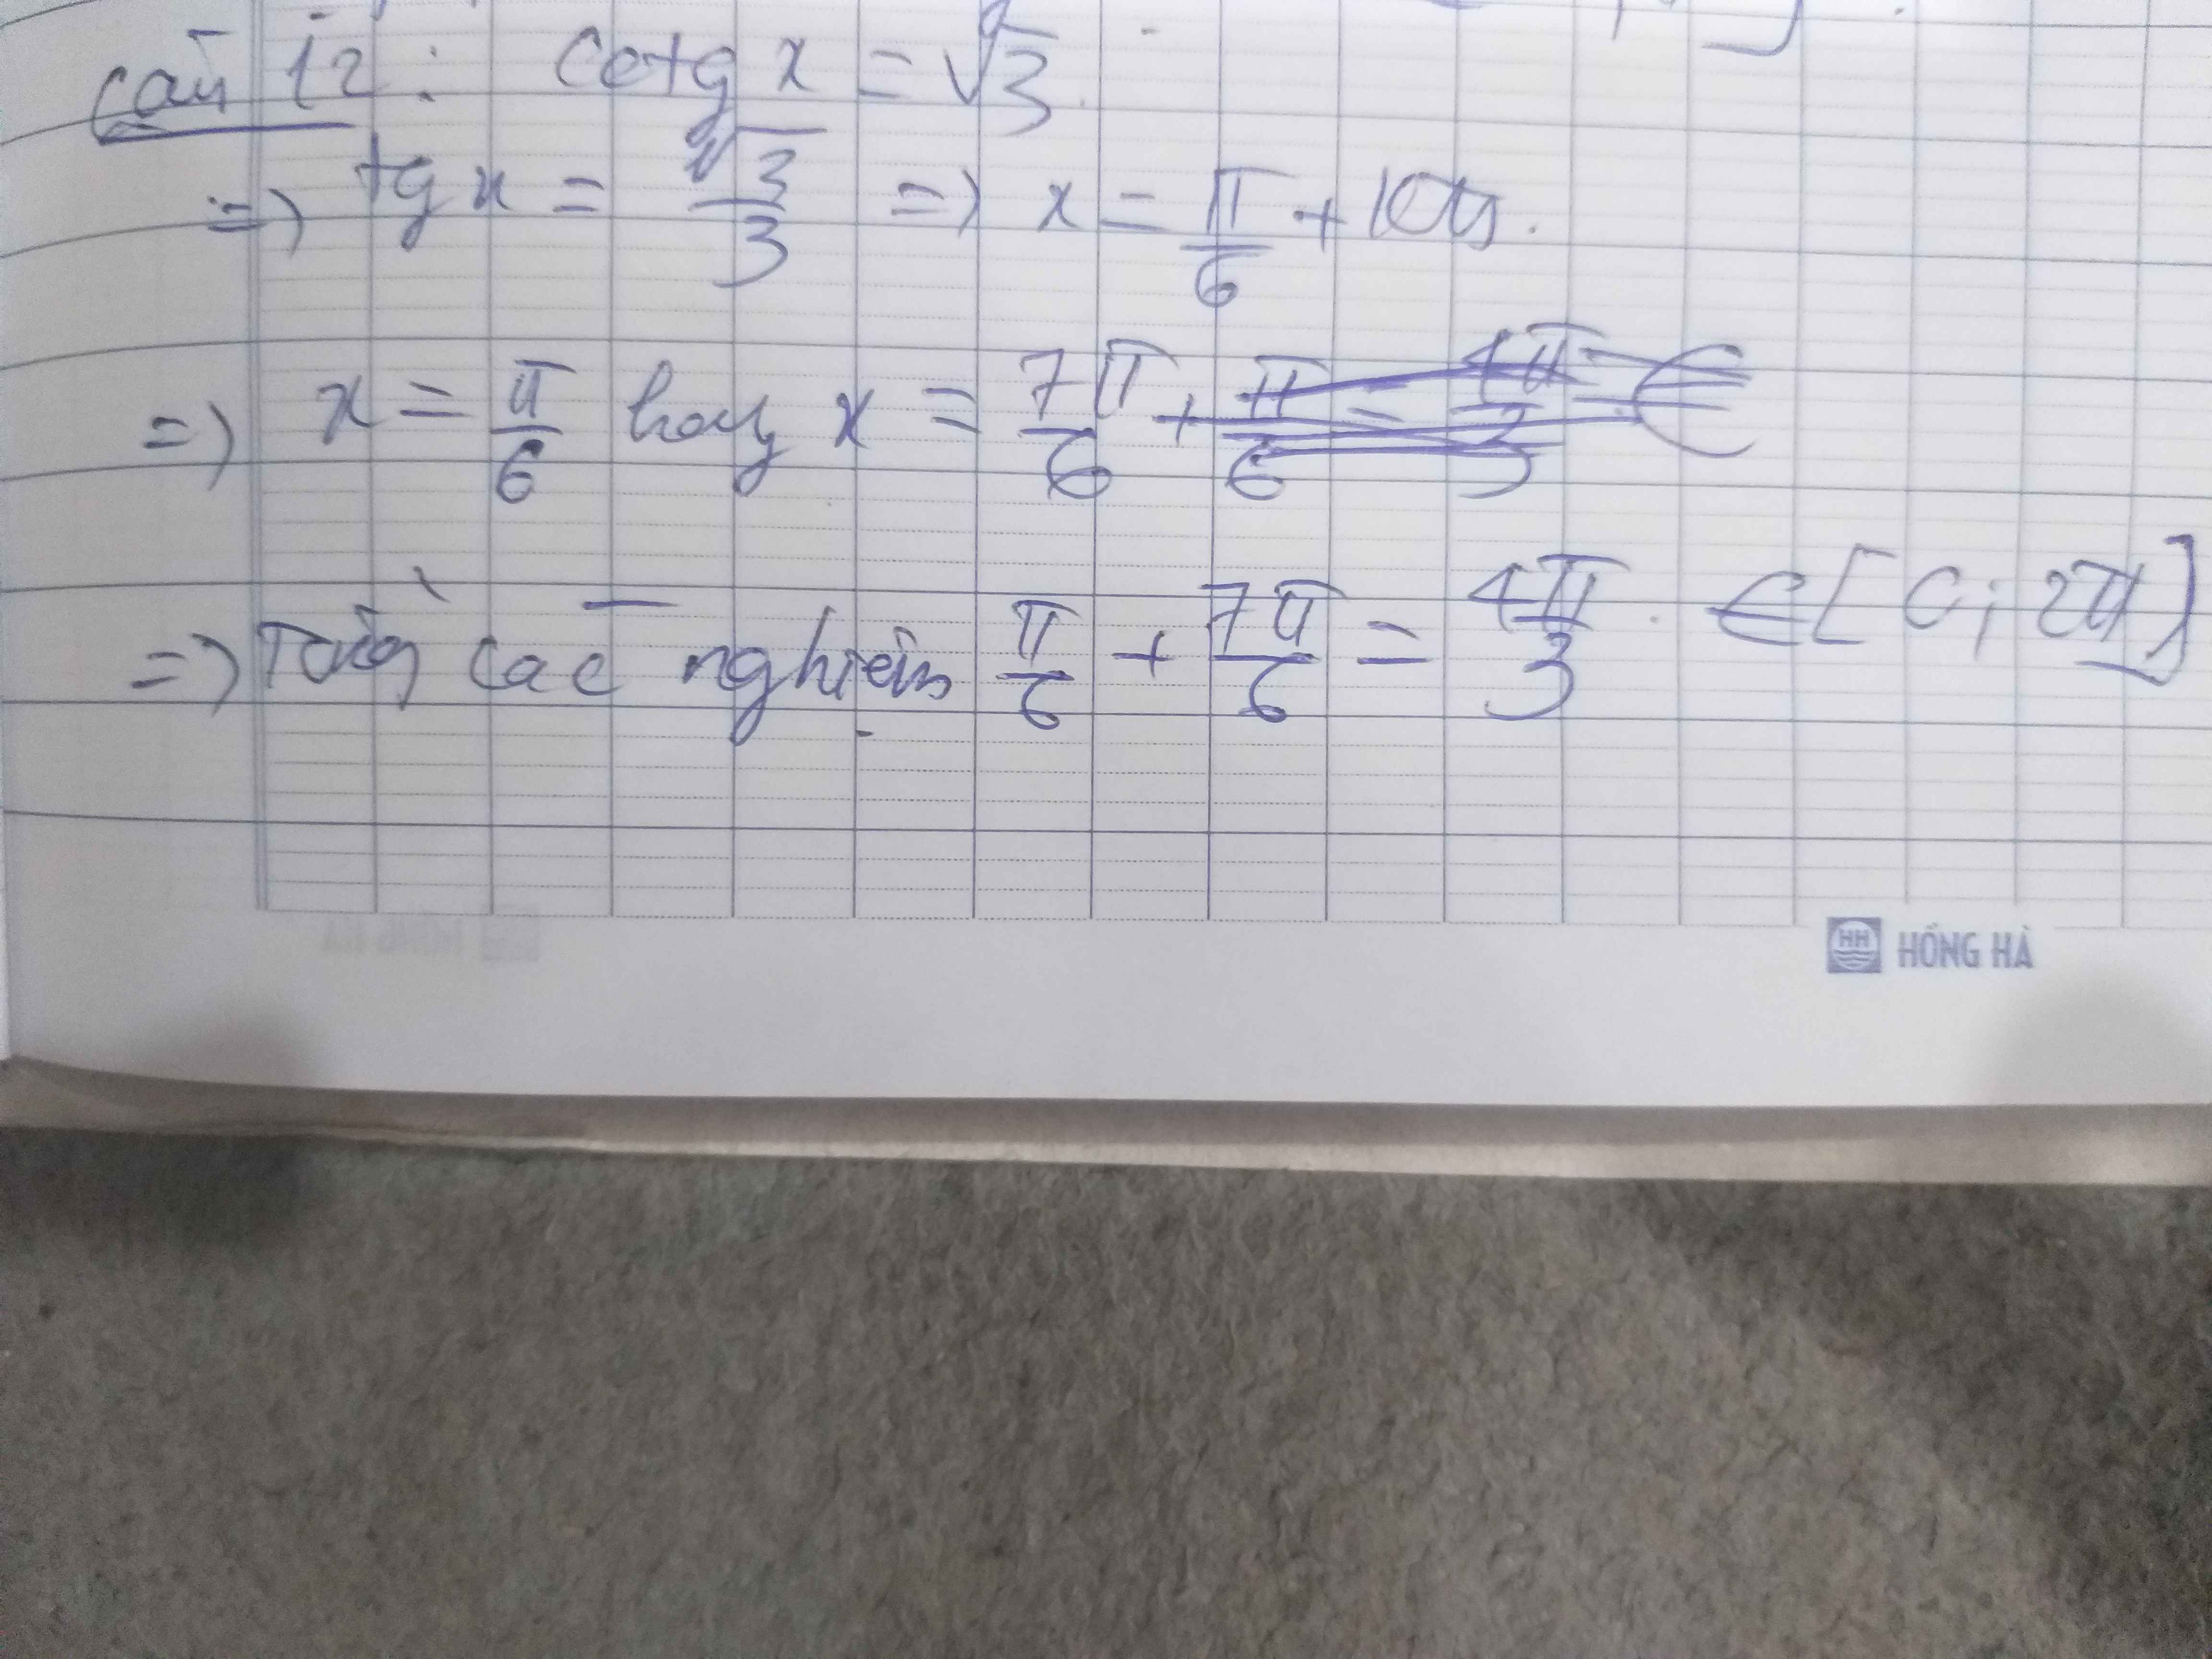 câu 12: cotg x = √3.
=> tg x = √3/3 => x = π/6 + kπ.
=> x = π/6 hay x = 7π/6 + π/6 = 4π/3 ∈
=> Tổng các nghiệm π/6 + 7π/6 = 4π/3. ∈ [0; 2π]
HH HỒNG HÀ